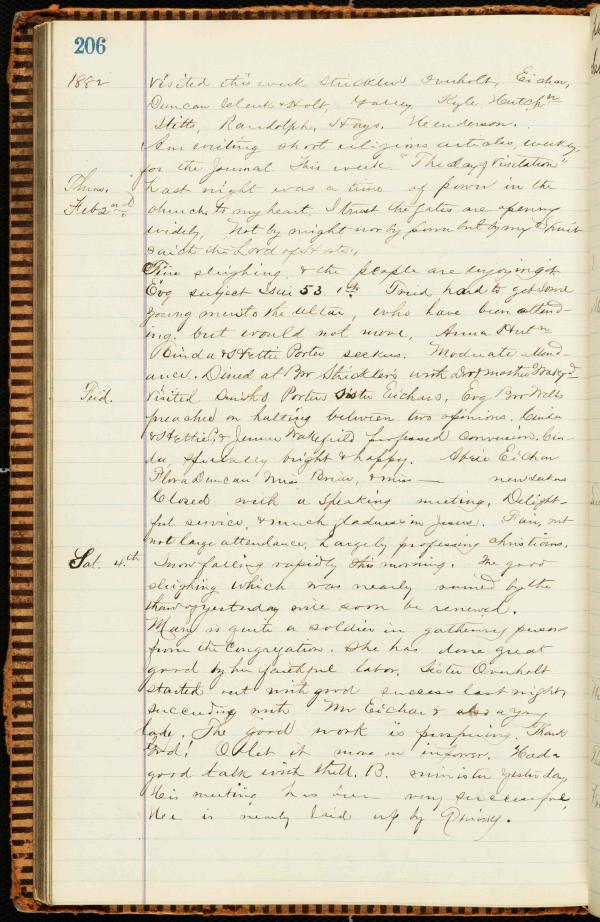 206
1882 Visited this week Stricklers Overholt, Eichar,
Duncan Clerk & Holt, Kyle Hutchn
Stitts, Randolph, Hays. Henderson.
Am writing short religious articles, weekly
for the Journal This week "The day of Visitation"
Thurs. Last night was a time of power in the
Feb 2nd. church, to my heart. I trust the gates are opening
widely, Not by might nor by power but by my Spirit
saith the Lord of Hosts.
Fine sleighing & the people are enjoying it
Evg subject Isai 53. 1st Tried hard to get some
young men to the altar, who have been attend-
ing. but would not move, Anna Hutn
Linda & Hettie Porter seekers. Moderate attend-
ance. Dined at Bro Stricklers with
Frid. Visited Porters Sister Eichars, Evg Bro Wells
preached on halting between two opinions. Linda
& Hettie P. & Jennie Wakefield professed conversion. Lin-
da & bright & happy. Eichar
Flora Duncan Miss & Miss — new seekers
Closed with a Speaking meeting, Delight-
ful service, & much gladness in Jesus. Fair, not
not large attendance, Largely professing christians.
Sat. 4.th Snow falling rapidly this morning. The good
sleighing which was nearly ruined by the
thaw of yesterday will soon be renewed.
Mary is quite a soldier in gathering persons
from the congregation. She has done great
good by her faithful labor. Sister Overholt
started out with good success last night,
succeeding with Mr Eichar & a yng
lady. The good work is prospering. Thank
God! O let it move on in power. Had a
good talk with the U. B. minister yesterday
His meeting has been very successful,
Hee is nearly laid up by Quinsy.